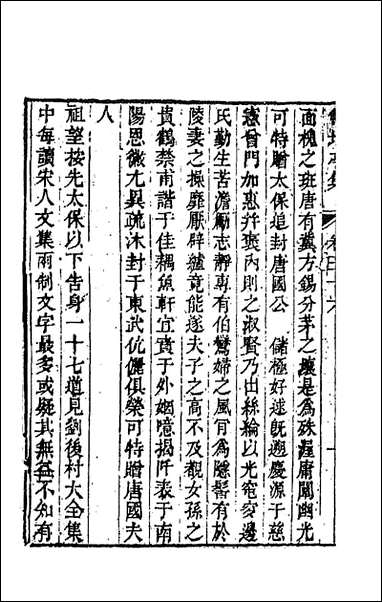 面槐之班唐有冀方錫分茅之壤是爲殊渥庸闡幽光
可特贈太保追封唐國公　儲極好逑旣遡慶源于慈
懿曾門加惠并褒內則之淑賢乃出絲綸以光窀穸邊
氏勤生苦澹勵志靜專有伯鸞婦之風肎爲髽髻有於
陵妻之操靡厭辟纑竟能遂夫子之高不及覩女孫之
貴鶴禁甫諧于佳耦魚軒宜賁于外姻噫揭阡表于南
陽恩徽尤異疏沐封于東武伉儷俱榮可特贈唐國夫
人
祖望按先太保以下告身一十七道見劉後村大全集
中每讀宋人文集兩制文字最多或疑其無益不知有